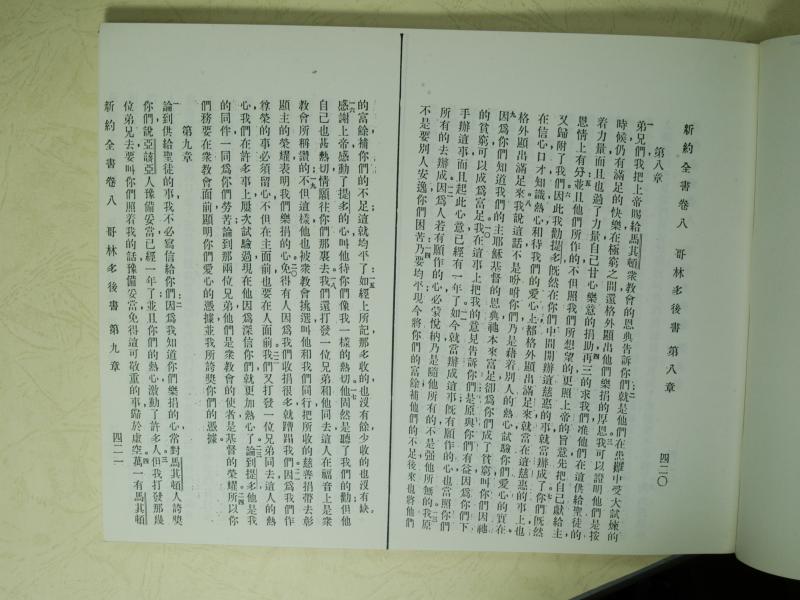 新約全書卷八 哥林多後書 第八章 四二〇
第八章
弟兄們我把上帝賜給馬其頓衆教會的恩典告訴你們就是他們在患難中受大試煉的
時候仍有滿足的快樂在極窮之間還格外顯出他們樂捐的厚恩我可以證明他們是按
着力量而且也過了力量自己甘心樂意的捐助再三的求我們准他們在這供給聖徒的
恩情上有分並且他們所作的不但照我們所想望的更照上帝的旨意先把自己獻給主
又歸附了我們因此我勸提多旣然在你們中間開辦這慈惠的事就當辦成了你們旣然
在信心口才知識熱心和待我們的愛心上都格外顯出滿足來就當在這慈惠的事上也
格外顯出滿足來我說這話不是吩咐你們乃是藉着別人的熱心試驗你們愛心的實在
因爲你們知道我們的主耶穌基督的恩典他本來富足卻爲你們成了貧窮叫你們因他
的貧窮可以成爲富足我在這事上把我的意見告訴你們是原與你們有益因爲你們下
手辦這事而且起此心意已經有一年了如今就當辦成這事旣有願作的心也當照你們
所有的去辦成因爲人若有願作的心必蒙悅納乃是照他所有的不是照他所無的我原
不是要別人安逸你們困苦乃要均平現今將你們的富餘補他們的不足後來也將他們
的富餘補你們的不足這就均平了如經上所記那多收的也沒有餘少收的也沒有缺
感謝上帝感動了提多的心叫他待你們像我一樣的熱切他固然是聽了我們的勸但他
自己也甚熱切情願往你們那裏去我們還打發一位兄弟和他同去這人在福音上是衆
教會所稱讚的不但這樣他也被衆教會挑選叫他和我們同行把所收的慈善捐帶去彰
顯主的榮耀表明我們樂捐的心免得有人因爲我們收捐很多就蹧蹋我們因爲我們作
尊榮的事必須留心不但在主面前也要在人面前我們又打發一位兄弟同去這人的熱
心我們在許多事上屢次試驗過現在他因爲深信你們就更加熱心了論到提多他是我
的同伴一同爲你們勞苦論到那兩位兄弟他們是衆教會的使者是基督的榮耀所以你
們務要在衆教會面前顯明你們愛心的憑據並我所誇獎你們的憑據
第九章
論到供給聖徒的事我不必寫信給你們因爲我知道你們樂捐的心常對馬其頓人誇獎
你們說亞該亞人豫備妥當已經一年了並且你們的熱心激動了許多人但我打發那幾
位弟兄去要叫你們照着我的話豫備妥當免得這可敬重的事歸於虛空萬一有馬其頓
新約全書卷八 哥林多後書 第九章 四二一